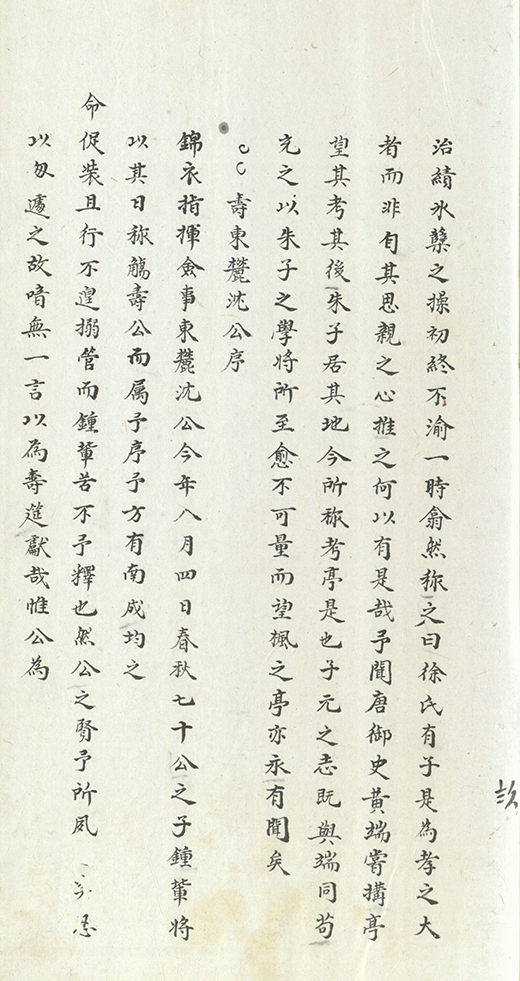 治績氷蘖之操初終不渝一時翕然稱之曰徐氏有子是為孝之大
者而非自其思親之心推之何以有是哉予聞唐御史黄端嘗搆亭
望其考其後朱子居其地今所稱考亭是也子元之志既與端同苟
充之以朱子之學將所至愈不可量而望楓之亭亦永有聞矣
壽東麓沈公序
錦衣指揮僉事東麓沈公今年八月四日春秋七十公之子鍾軰將
以其日稱觴壽公而属予序予方有南成均之
命促装且行不遑搦管而鍾軰苦不予釋也然公之賢予所夙
以匆遽之故喑無一言以為壽筵獻哉惟公為